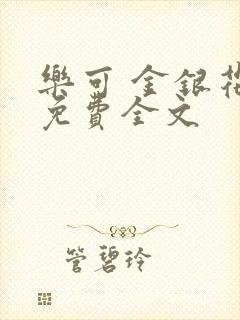 樂可 金銀花
免費全文
管碧玲